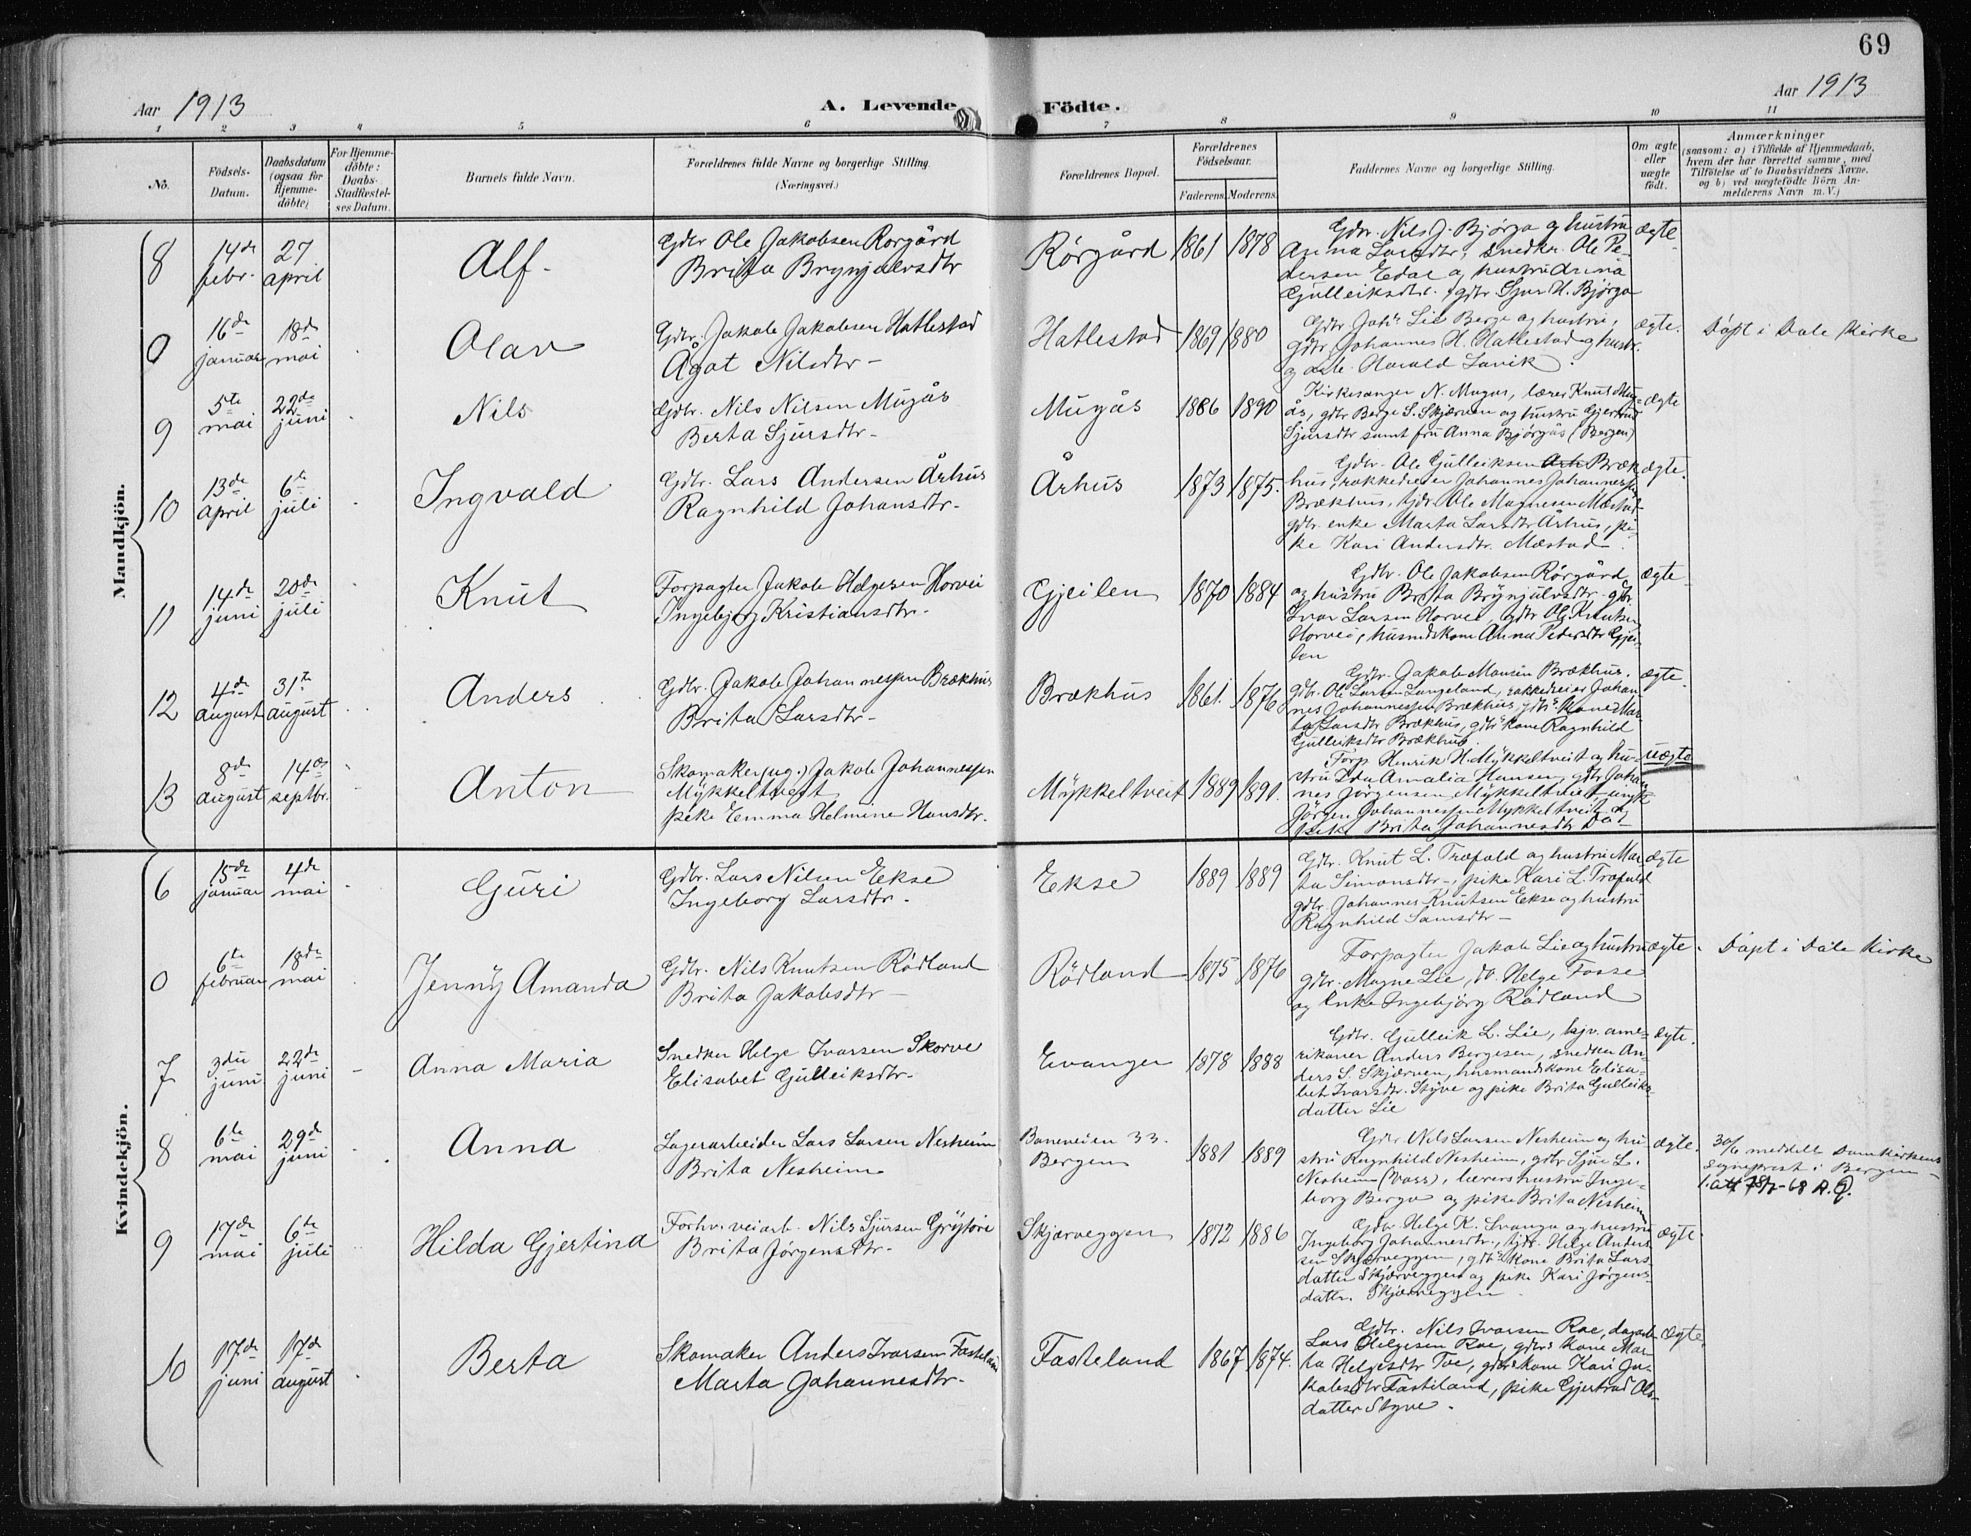 69
Aar 1913
A. Levende Födte.
Aar 1913
1 2 3 4 5 6 7 8 9 10 11
No.
Födsels-Datum.
Daabsdatum (ogsaa for Hjemme-döbte)
For Hjemme-döbte: Daabs-Stadfæstel-ses Datum.
Barnets fulde Navn.
Forældrenes fulde Navne og borgerlige Stilling. (Næringsvei.)
Forældrenes Bopæl.
Forældrenes Födselsaar.
Faderens. Moderens.
Faddernes Navne og borgerlige Stilling.
Om ægte eller uægte födt.
Anmærkninger
(saasom: a) i Tilfælde af Hjemmedaab,
hvem der har forrettet samme, med
Tilföielse af to Daabsvidners Navne,
og b) ved uægtefödte Börn An-
melderens Navn m. V.)
Mandkjön.
8 14de febr. 27 april
Alf
Gdbr Ole Jakobsen Rørgård
Brita Brynjulvsdtr
Rörgård 1861 1878
Gdbr. Nils J. Bjørgo og hustru
Anna Larsdtr, snedker Ole Pe-
dersen Edal og hustru Anna
Gulleiksdtr. gdbr Sjur H. Bjørgo
ægte
0 16de januar 18de mai
Olav
Gdbr. Jakob Jakobsen Hatlestad
Ågot Nilsdtr
Hatlestad 1869 1880
Gdbr Johs Lie Berge og hustru,
gdbr Johannes H. Hatlestad og hustr.
og Harald Lavik
ægte.
Døpt i Dale Kirke
9 5te mai 22de juni
Nils
Gdbr. Nils Nilsen Mugås
Berta Sjursdtr
Mugås 1886 1890
Kirkesanger N. Mugås, lærer Knut Mug-
ås, gdbr Berge S. Skjerven og hustru Gjertrud
Sjursdtr samt fru Anna Bjørgås (Bergen)
ægte
10 13de april 6te juli
Ingvald
Gdbr. Lars Andersen Århus
Ragnhild Johansdtr
Århus 1873 1875.
Gdbr. Ole Gulleiksen Bræk
hus, Johannes Johannessen
Brækhus, gdbr Ole Magnesen Mæstad
gdbr. enke Marta Larsdtr Århus, pi-
ke Kari Andersdtr. Mæstad
ægte.
11 14de juni 20de juli
Knut
Forpagter Jakob Helgesen Horvei
Ingebjørg Kristiansdtr.
Gjeilen 1870 1884
Gdbr. Ole Jakobsen Rørgård
og hustru Brita Brynjulvsdtr. gdbr.
Ivar Larsen Horvei, gdbr Ole Knutsen
Horvei, husmdskone Anna Pedersdtr Gjei-
len
ægte
12 4de august 31te august
Anders
Gdbr. Jakob Johannessen Brækhus
Brita Larsdtr
Brækhus 1861. 1876
Gdbr. Jakob Monsen Brækhus.
gdbr. Ole Larsen Langeland, Johan-
nes Johannessen Brækhus, gdbrs kone Mar-
ta Larsdtr Brækhus, gdbrs kone Ragnhild
Gulleiksdtr Brækhus
ægte.
13 8de august 14de septbr.
Anton
Skomaker (ug.) Jakob Johannessen
Mykkeltveit
pike Emma Helmine Hansdtr.
Mykkeltveit 1889 1891.
Forp Henrik H. Mykkeltveit og hu-
stru Ida Amalia Hansen, gdbr Johan-
nes Jørgensen Mykkeltveit, ungk.
Jørgen Johannessen Mykkeltveit og
pike Brita Johannesdtr
uægte
Kvindekjön.
6 15de januar 4de mai
Guri
Gdbr. Lars Nilsen Ekse
Ingeborg Larsdtr.
Ekse 1889 1889
Gdbr. Knut L. Træfald og hustru Mar
ta Simonsdtr, pike Kari L. Træfald
gdbr. Johannes Knutsen Ekse og hustru
Ragnhild Samsdtr
ægte
0 6te februar 18de mai
Jenny Amanda
Gdbr. Nils Knutsen Rødland
Brita Jakobsdtr
Rødland 1875 1876
Forpagter Jakob Lie og hustru
gdbr. Magne Lie, do. Helge Fosse
og Enke Ingebjørg Rødland
ægte.
Døpt i Dale Kirke
7 3die juni 22de juni
Anna Maria
Snedker Helge Ivarsen Skorve
Elisabet Gulleiksdtr.
Evanger 1878 1888
Gdbr. Gulleik L. Lie, hjv. ame-
rikaner Anders Bergesen, snedker An-
ders S. Skjerven, husmandskone Elisa-
bet Ivarsdtr. Styve og pike Brita Gulleiks-
datter Lie
ægte.
8 6te mai 29de juni
Anna
Lagerarbeider Lars Larsen Nesheim
Brita Nesheim
Baneveien 33.
Bergen 1881 1889
Gdbr Nils Larsen Nesheim og hu
stru Ragnhild Nesheim, gdbr Sjur L.
Nesheim (Voss), lærers hustru Inge-
borg Berge og pike Brita Nesheim
ægte.
30/6 meddelt Domkirkens
Sogneprest i Bergen
9 17de mai 6te juli
Hilda Gjertina
Forhv. veiarb. Nils Sjursen
Brita Jørgensdtr.
Skjærveggen 1872 1886
Gdbr Helge K. Evanger og hustru
Ingeborg Johannesdtr., Helge Anders
sen Skjerveggen, gdbrs kone Brita Lars
datter Skjærveggen og pike Kari Jørgens-
datter Skjærveggen
ægte.
10 17de juni 17de august
Berta
Skomaker Anders Ivarsen Fasteland
Marta Johannesdtr.
Fasteland 1867 1874.
Gdbr. Nils Ivarsen Roe, dagarb.
Lars Helgesen Roe, gdbrs kone Mar-
ta Helgesdtr, gdbrs kone Kari Ja-
kobsdtr Fasteland, pike Gjertrud Ols-
datter Styve.
ægte.